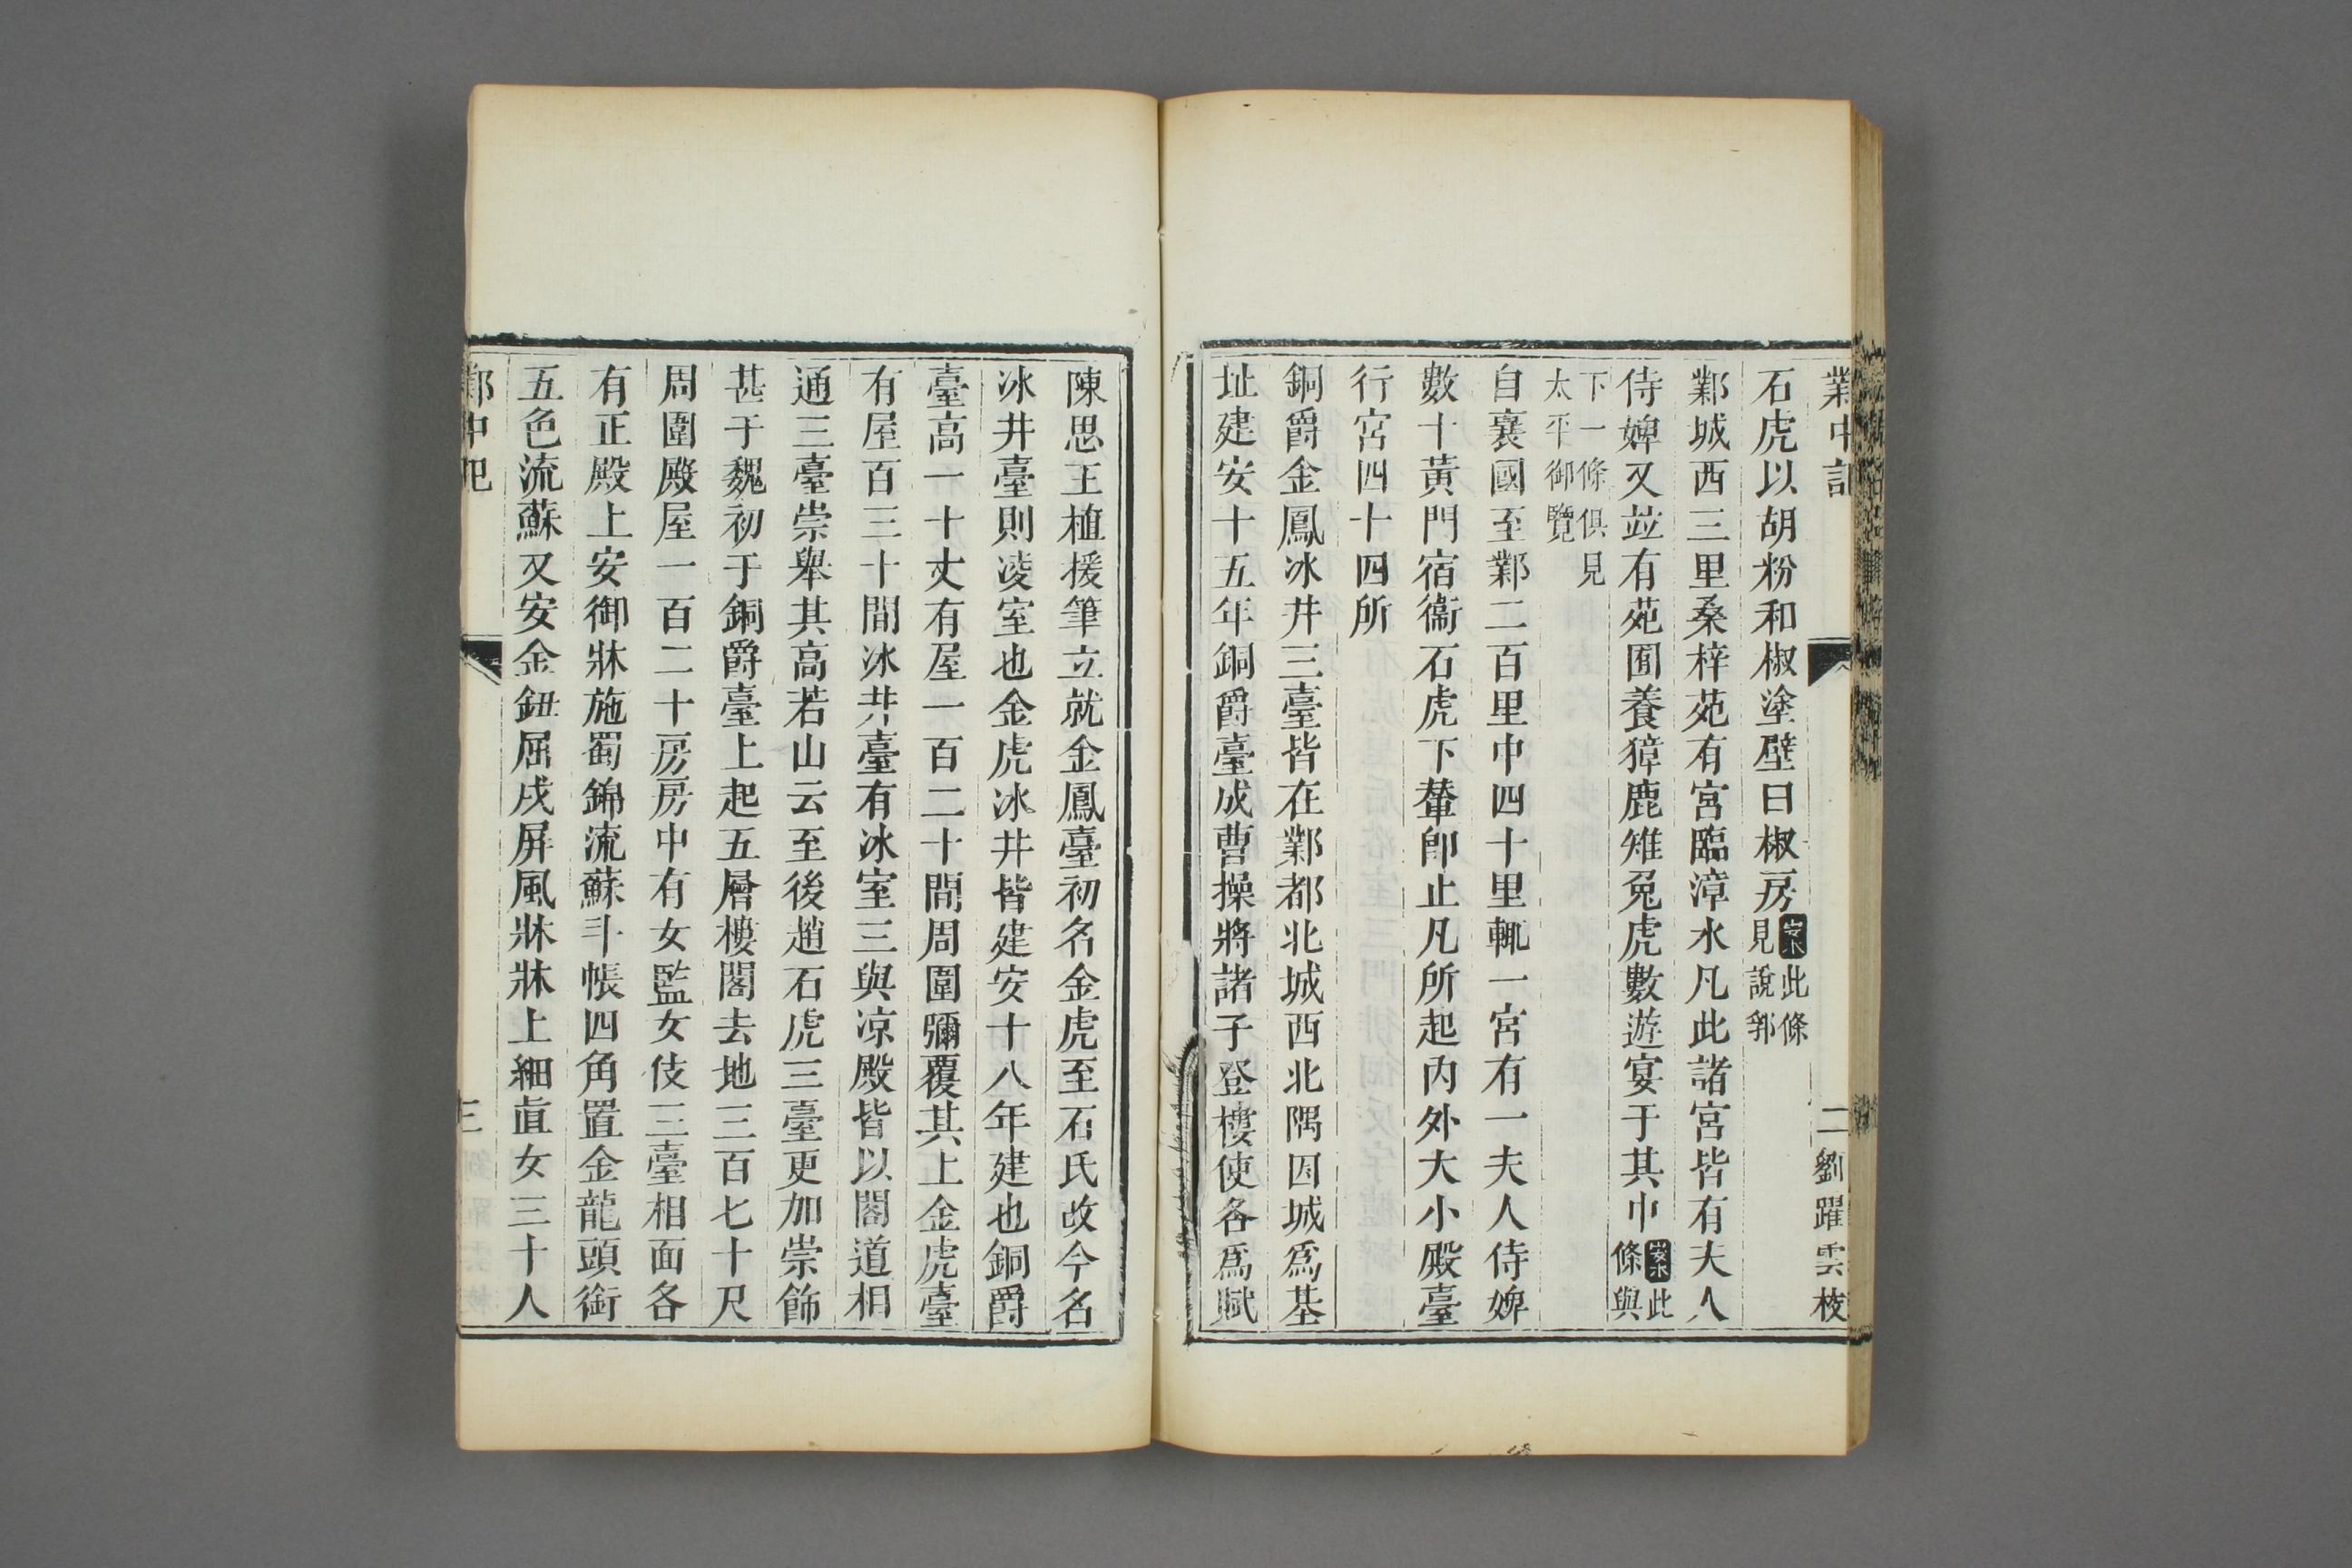 鄴中記
二 劉躍雲校
石虎以胡粉和椒塗壁曰椒房案此條見說郛
鄴城西三里桑梓苑有宮臨漳水凡此諸宮皆有夫人
侍婢又竝有苑囿養獐鹿雉兔虎數遊宴于其中案此條與
下一條俱見太平御覽
自襄國至鄴二百里中四十里輒一宮有一夫人侍婢
數十黃門宿衞石虎下輦卽止凡所起內外大小殿臺
行宮四十四所
銅爵金鳳冰井三臺皆在鄴都北城西北隅因城爲基
址建安十五年銅爵臺成曹操將諸子登樓使各爲賦
陳思王植援筆立就金鳳臺初名金虎至石氏改今名
冰井臺則凌室也金虎冰井皆建安十八年建也銅爵
臺高一十丈有屋一百二十間周圍彌覆其上金虎臺
有屋百三十間冰井臺有冰室三與凉殿皆以閣道相
通三臺崇舉其高若山云至後趙石虎三臺更加崇飾
甚于魏初于銅爵臺上起五層樓閣去地三百七十尺
周圍殿屋一百二十房房中有女監女伎三臺相面各
有正殿上安御牀施蜀錦流蘇斗帳四角置金龍頭銜
五色流蘇又安金鈕屈戌屏風牀牀上細直女三十人
鄴中記
三